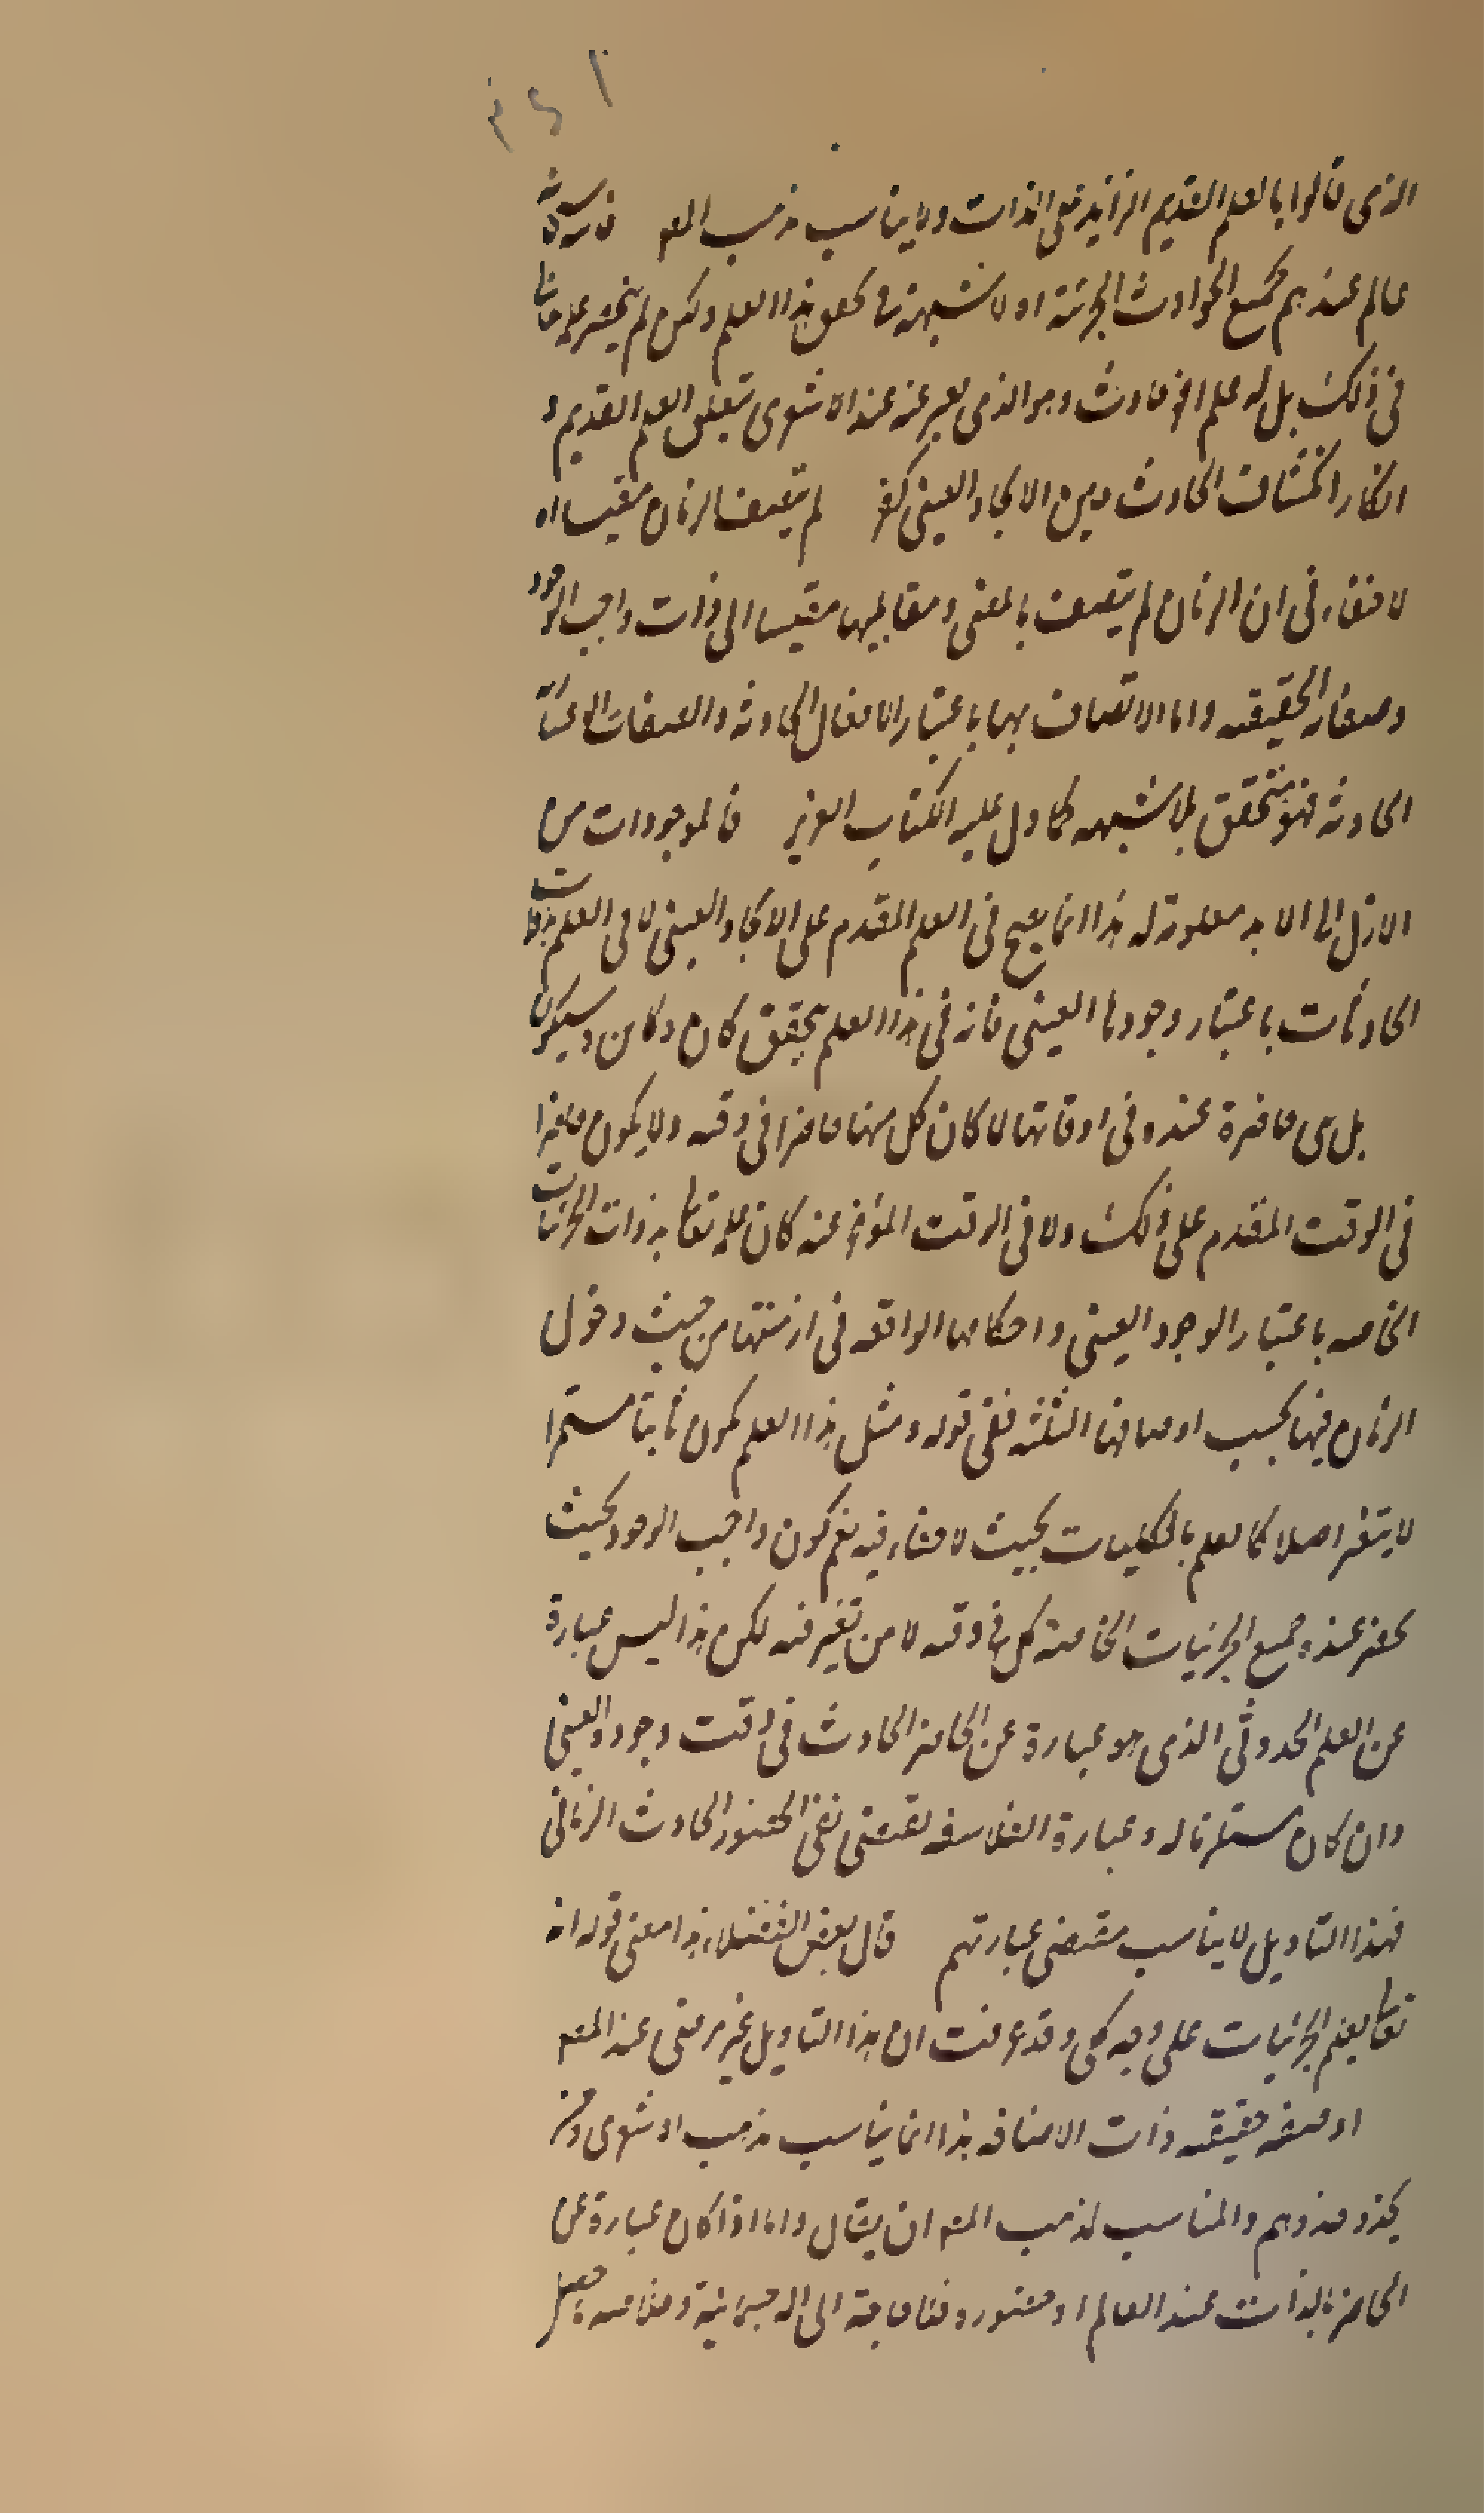 الذى قالوا بالعلم القديم الزايد على الذات ولا يناسب مذهب المصـ فانه تعالى
عالم عندهم بجميع الحوادث الجزئية اولا شبهة فى تحقق هذا العلم ولكن لم ينحصر علمه تعالى
فى ذلك بل له علم اخر حادث وهو الذى يعبر عنه عند الاشعرى بتعلق العلم القديم و
انكار انكشاف الحادث حين الايجاد العينى كفر لم يتصف الزمان مقيسا اه
لا خفاء فى ان الزمان لم يتصف بالمضى ومقابليها مقيسا الى ذات واجب الوجود
وصفاته الحقيقية واما الاتصاف بها باعتبار الافعال الحادثة والصفات الاعتبارية
الحادثة فهو متحقق بلا شبهة كما دل عليه الكتاب العزيز فالموجودات من
الازل الى الابد معلومة له هذا انما يصح فى العلم المقدم على الايجاد العينى لا فى العلم بذوات
الحادثات باعتبار وجودها العينى فانه فى هذا العلم يتحقق كان وكائن وسيكون
بل هى حاضرة عنده فى اوقاتها لما كان كل منها حاضرا فى وقته ولا يكون حاضرا
فى الوقت المقدم على ذلك ولا فى الوقت المؤخر عنه كان علمه تعالى بذوات الجزئيات
الخاصة باعتبار الوجود العينى واحكامها الواقعة فى ازمنتها من حيث دخول
الزمان فيها بحسب اوصافها الثلثة ففى قوله ومثل هذا العلم يكون ثابتا مستمرا
لا يتغير اصلا كالعلم بالكليات بحيث لا خفاء فيه نعم كون واجب الوجود بحيث
يحضر عنده جميع الجزئيات الخاصة كل فى وقته لا من تغير فيه لكن هذا ليس عبارة
عن العلم الحدوثى الذى هو عبارة عن الحاضر الحادث فى وقت وجوده العينى
وان كان مستلزما له وعبارة الفلاسفه تقتضى نفى الحضور الحادث الزمانى
فهذا التاويل لا يناسب مقتضى عبارتهم قال بعض الفضلاء هذا معنى قوله انه
تعالى يعلم الجزئيات على وجه كلى وقد عرفت ان هذا التاويل غير مرضى عند المصـ
او صفة حقيقية ذات الاضافة هذا انما يناسب مذهب الاشعرى ومن
يحذو حذوهم والمناسب لمذهب المصـ ان يقال واما اذا كان عبارة عن
الحاضر بالذات عند العالم او حضوره فلا حاجة الى الة جسمانية وخلاصة